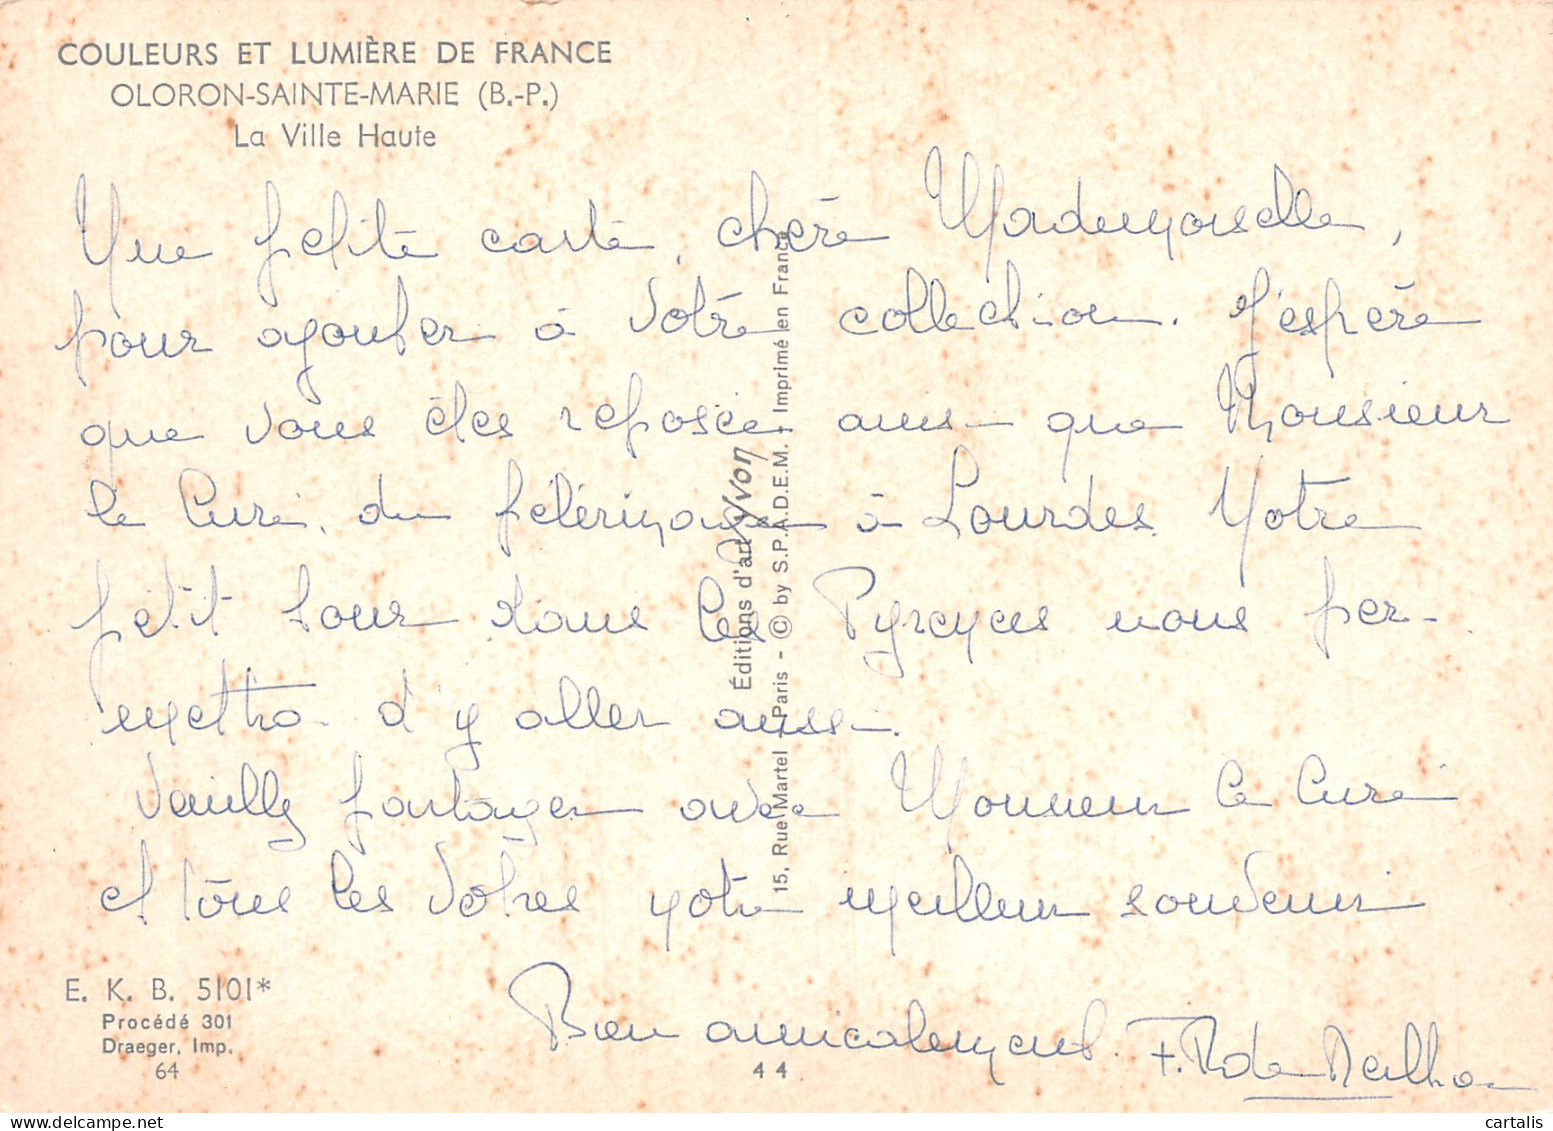 COULEURS ET LUMIÈRE DE FRANCE
OLORON-SAINTE-MARIE (B.-P.)
La Ville Haute
Une petite carte, chère Mademoiselle,
pour ajouter à votre collection. J'espère
que vous êtes reposée ainsi que Monsieur
le Curé, du pélérinage à Lourdes. Notre
petit tour dans les Pyrenees nous per-
mettra d'y aller aussi.
Veuillez partager avec Monsieur le Curé
et tous les vôtres notre meilleur souvenir
Bien amicalement. F. R de
Éditions d'art Yvon
15, Rue Martel - Paris - © by S.P.A.D.E.M. - Imprimé en France
E. K. B. 5101*
Procédé 301
Draeger, Imp.
64
44
cartalis